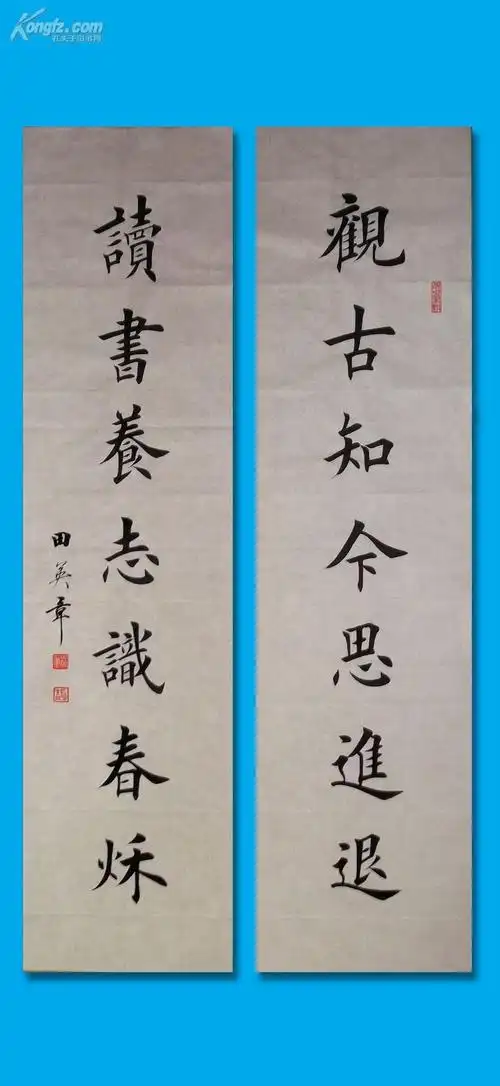 Kongfz.com
孔夫子旧书网
觀古知今思進退
讀書養志識春秌
田英章